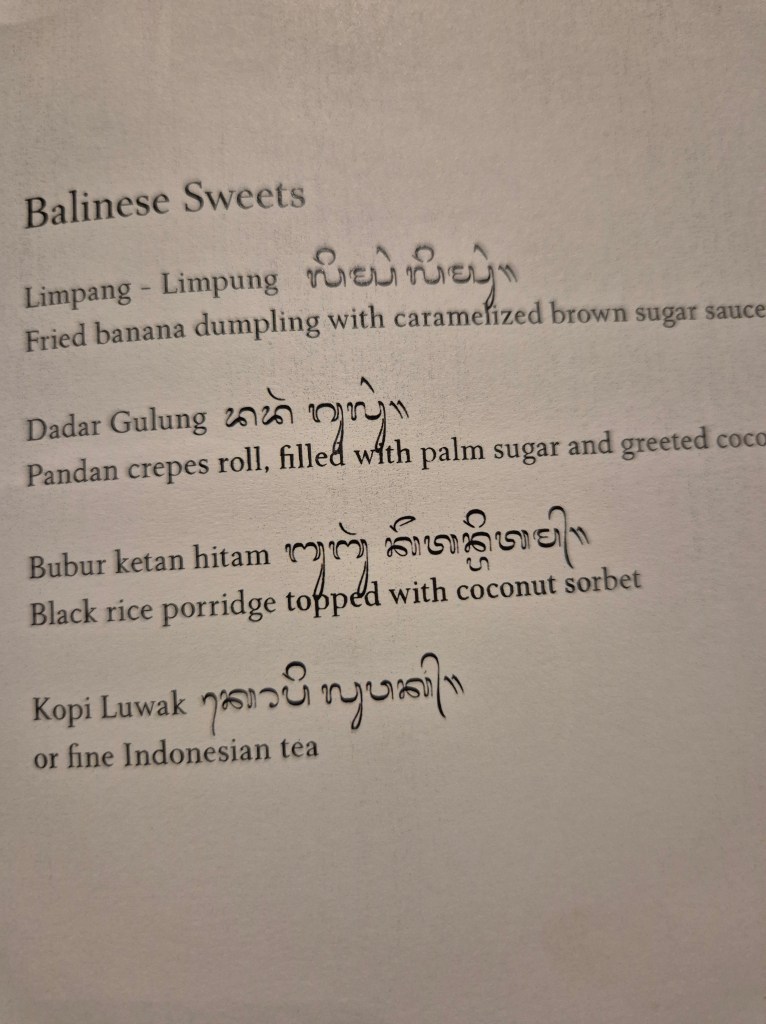 Balinese Sweets
Limpang - Limpung ᬮᬶᬫ᭄ᬧᬂ ᬮᬶᬫ᭄ᬧᬸᬂ᭟
Fried banana dumpling with caramelized brown sugar sauce
Dadar Gulung ᬤᬤᬃ ᬕᬸᬮᬸᬂ᭟
Pandan crepes roll, filled with palm sugar and greeted coco
Bubur ketan hitam ᬩᬸᬩᬸᬃ ᬓᭂᬢᬦ᭄ᬳᬶᬢᬫ᭄᭟
Black rice porridge topped with coconut sorbet
Kopi Luwak ᬓᭀᬧᬶ ᬮᬸᬯᬓ᭄᭟
or fine Indonesian tea